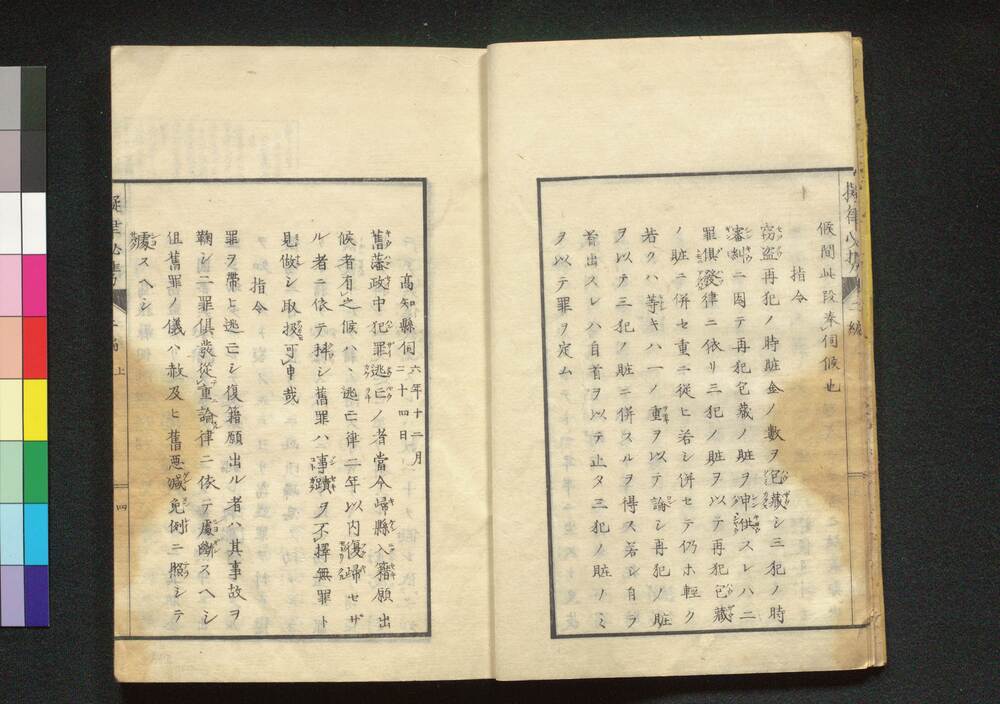 候間此段奉伺候也
指令
窃盗再犯ノ時贓金ノ數ヲ包藏シ三犯ノ時
審糾ニ因テ再犯包藏ノ贓ヲ呻供スレハ二
罪俱發律ニ依リ三犯ノ贓ヲ以テ再犯包藏
ノ贓ニ併セ重ニ從ヒ若シ併セテ仍ホ輕ク
若クハ等キハ一ノ重ヲ以テ論シ再犯ノ贓
ヲ以テ三犯ノ贓ニ併スルヲ得ス若シ自ラ
首出スレハ自首ヲ以テ止タ三犯ノ贓ノミ
ヲ以テ罪ヲ定ム
高知縣伺 六年十二月二十四日
舊藩政中犯罪逃亡ノ者當今歸縣入籍願出
候者有之候ハヽ逃亡律二年以内復歸セザ
ル者ニ依テ捧シ舊罪ハ事蹟ヲ不擇無罪ト
見做シ取扱可申哉
指令
罪ヲ帶ヒ逃亡シ復籍願出ル者ハ其事故ヲ
鞠シ二罪俱發從重論律ニ依テ處斷スヘシ
但舊罪ノ儀ハ赦及ヒ舊惡減免例ニ照シテ
處スヘシ
二編上
四